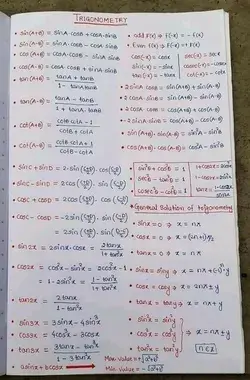 TRIGONOMETRY
• sin(A+B) = sinA·cosB + cosA·sinB
• sin(A-B) = sinA·cosB - cosA·sinB
• cos(A+B) = cosA·cosB - sinA·sinB
• cos(A-B) = cosA·cosB + sinA·sinB
• tan(A+B) = (tanA + tanB)/(1 - tanA·tanB)
• tan(A-B) = (tanA - tanB)/(1 + tanA·tanB)
• cot(A+B) = (cotB·cotA - 1)/(cotB + cotA)
• cot(A-B) = (cotB·cotA + 1)/(cotB - cotA)
• sinC + sinD = 2·sin((C+D)/2)·cos((C-D)/2)
• sinC - sinD = 2cos((C+D)/2)·sin((C-D)/2)
• cosC + cosD = 2cos((C+D)/2)·cos((C-D)/2)
• cosC - cosD = -2sin((C+D)/2)·sin((C-D)/2)
• sin2x = 2sinx·cosx = 2tanx/(1+tan²x)
• cos2x = cos²x - sin²x = 2cos²x - 1
= 1 - 2sin²x = (1 - tan²x)/(1 + tan²x)
• tan2x = 2tanx/(1 - tan²x)
• sin3x = 3sinx - 4sin³x
• cos3x = 4cos³x - 3cosx
• tan3x = (3tanx - tan³x)/(1 - 3tan²x)
• asinx + bcosx
Max value = +√(a²+b²)
Min Value = -√(a²+b²)
• odd F(x) ⇒ F(-x) = -F(x)
• Even F(x) ⇒ F(-x) = F(x)
cos(-x) = cosx
sin(-x) = -sinx
tan(-x) = -tanx
sec(-x) = secx
cosec(-x) = -cosecx
cot(-x) = -cotx
• 2sinA·cosB = sin(A+B) + sin(A-B)
• 2cosA·sinB = sin(A+B) - sin(A-B)
• 2cosA·cosB = cos(A+B) + cos(A-B)
• sin(A+B)·sin(A-B) = sin²A - sin²B
• cos(A+B)·cos(A-B) = cos²A - sin²B
• sin²θ + cos²θ = 1
• sec²θ - tan²θ = 1
• cosec²θ - cot²θ = 1
• General Solution of trigonometry
• sinx = 0 ⇒ x = nπ
• cosx = 0 ⇒ x = (2n+1)π/2
• tanx = 0 ⇒ x = nπ
• sinx = siny ⇒ x = nπ + (-1)ⁿ·y
• cosx = cosy ⇒ x = 2nπ ± y
• tanx = tany ⇒ x = nπ + y
• sin²x = sin²y
• cos²x = cos²y
• tan²x = tan²y
⇒ x = nπ ± y
n∈z